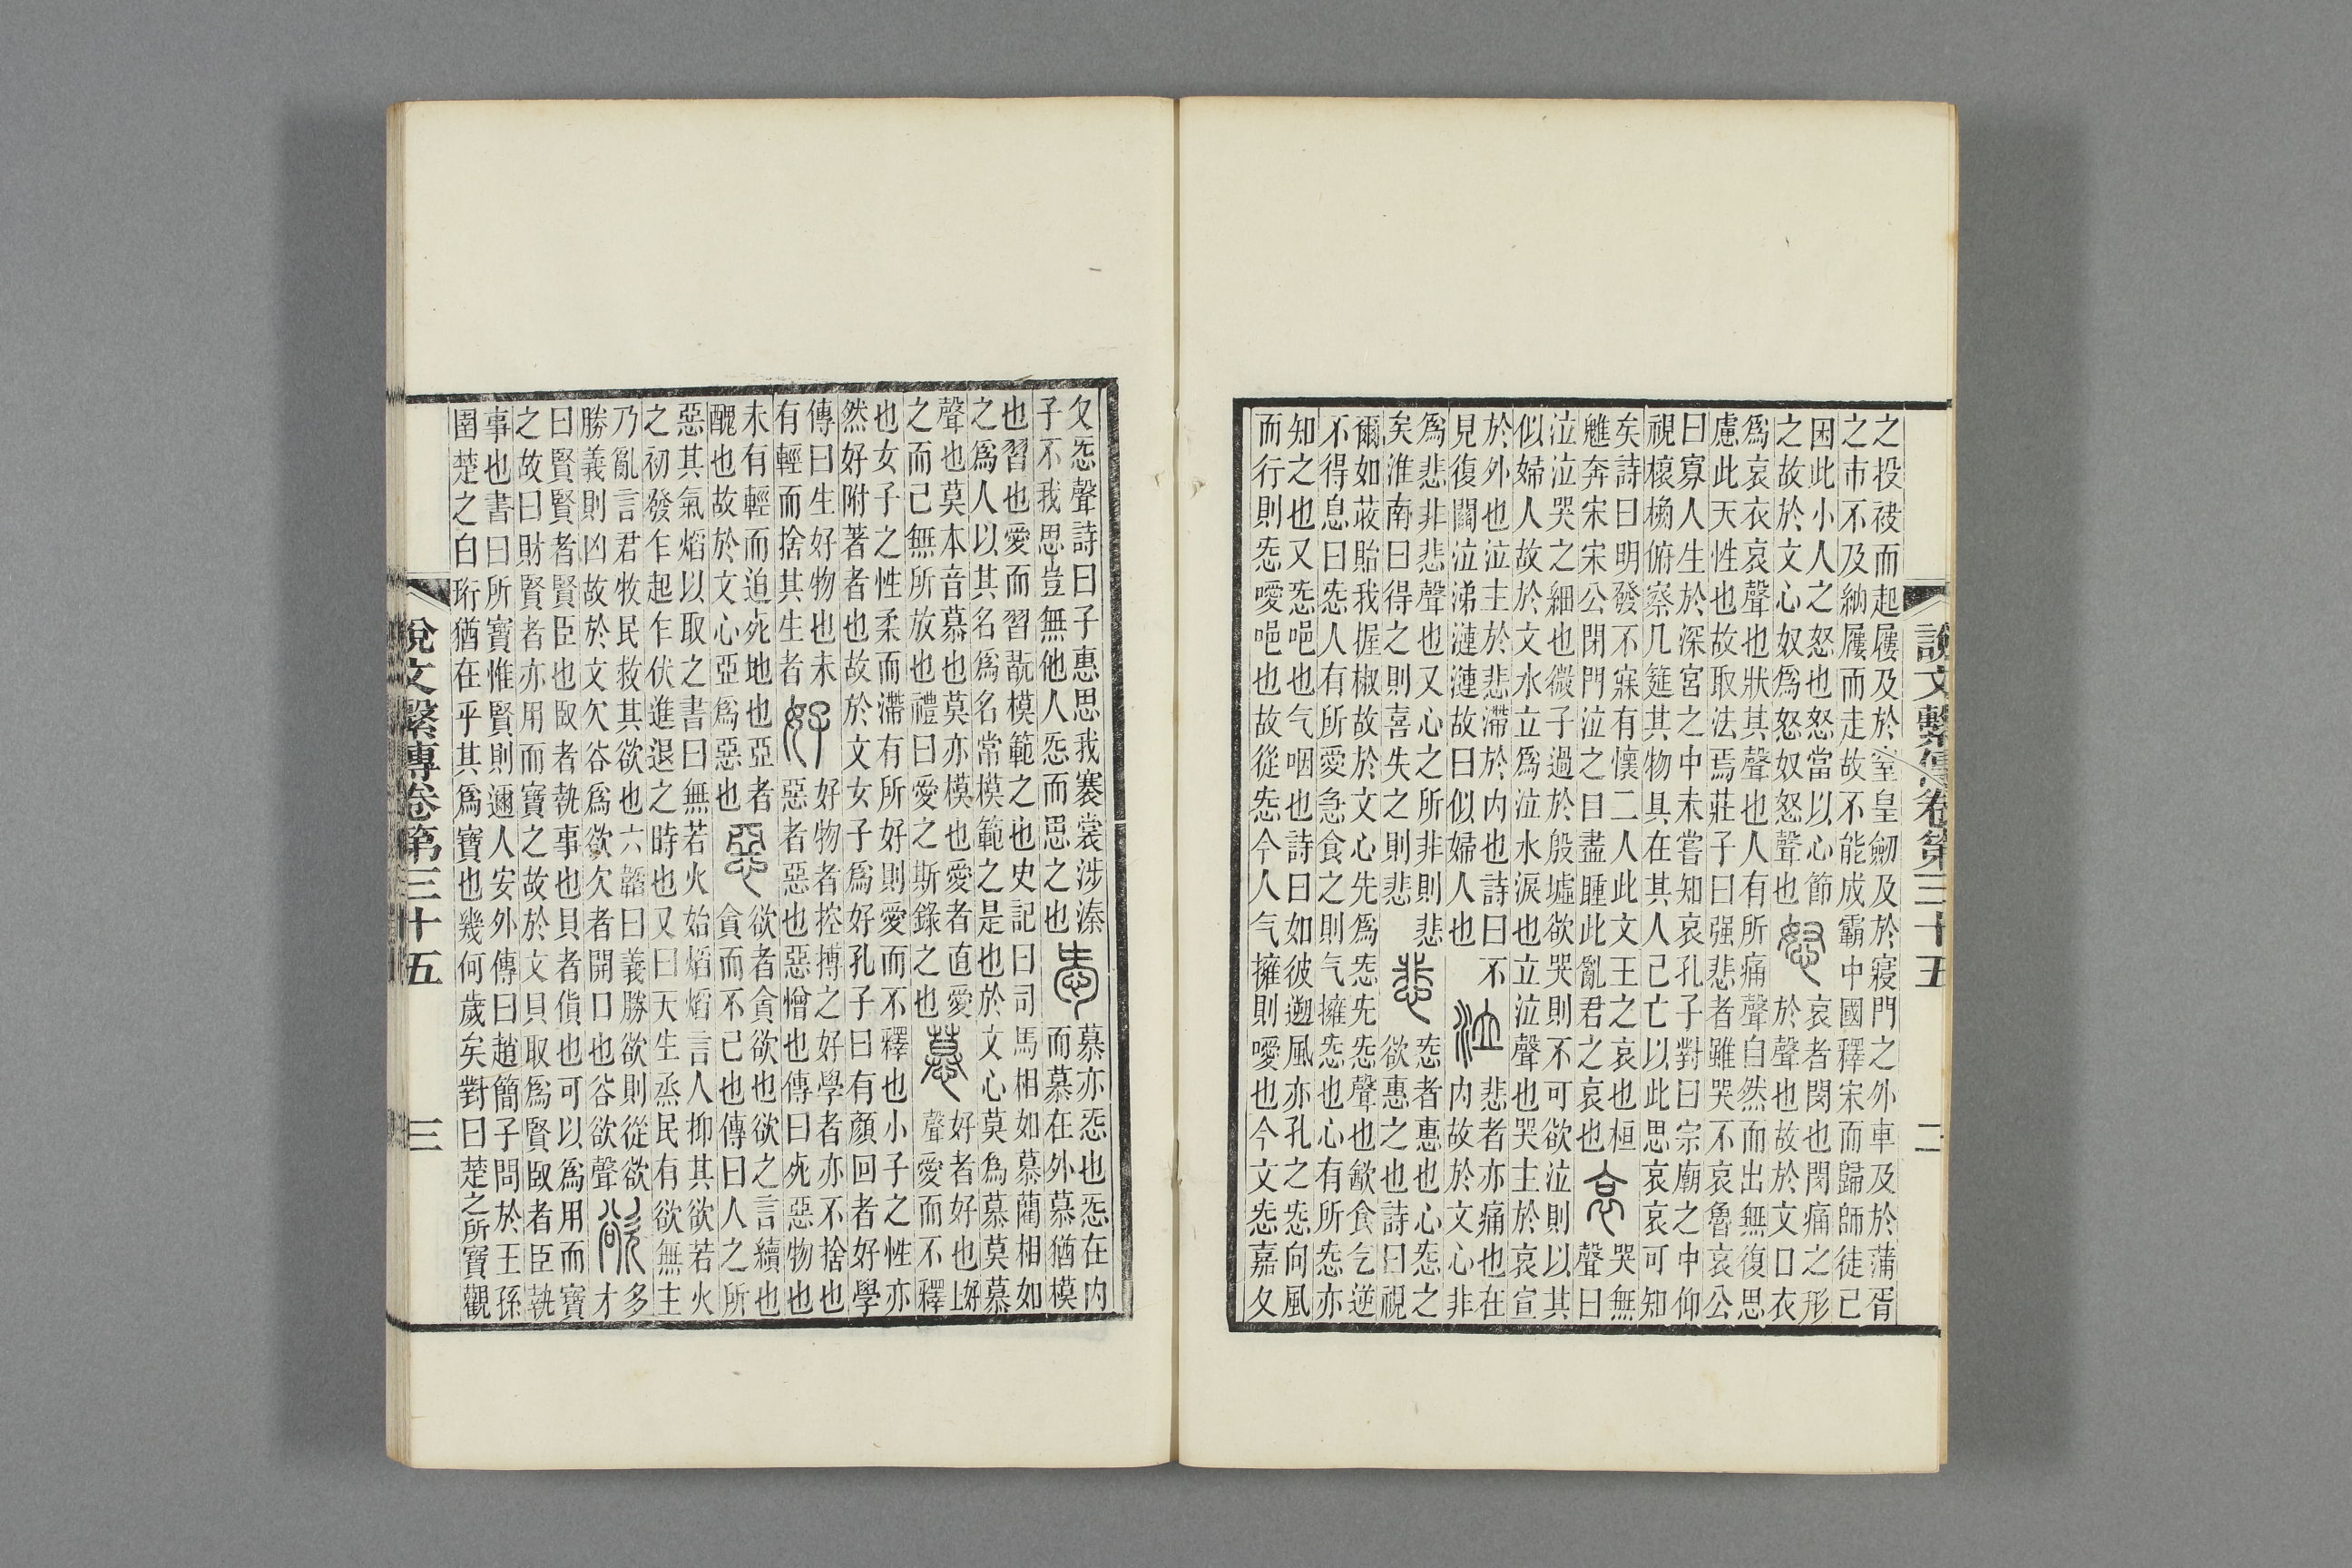 說文繫傳卷第三十五 二
之投袂而起屨及於窒皇劒及於寢門之外車及於蒲胥
之市不及納屨而走故不能成霸中國釋宋而歸師徒已
困此小人之怒也怒當以心節
之故於文心奴爲怒奴怒聲也
怒
哀者閔也閔痛之形
於聲也故於文口衣
爲哀衣哀聲也狀其聲也人有所痛聲自然而出無復思
慮此天性也故取法焉莊子曰强悲者雖哭不哀魯哀公
曰寡人生於深宮之中未嘗知哀孔子對曰宗廟之中仰
視榱桷俯察几筵其物具在其人已亡以此思哀哀可知
矣詩曰明發不寐有懷二人此文王之哀也桓
雔奔宋宋公閉門泣之曰盡腫此亂君之哀也
哀
哭無
聲曰
泣泣哭之細也微子過於殷墟欲哭則不可欲泣則以其
似婦人故於文水立爲泣水淚也立泣聲也哭主於哀宣
於外也泣主於悲滯於内也詩曰不
見復關泣涕漣漣故曰似婦人也
泣
悲者亦痛也在
内故於文心非
爲悲非悲聲也又心之所非則悲
矣淮南曰得之則喜失之則悲
悲
㤅者惠也心㤅之
欲惠之也詩曰視
爾如荍貽我握椒故於文心旡爲㤅旡㤅聲也㱃食气逆
不得息曰㤅人有所愛急食之則气擁㤅也心有所㤅亦
知之也又㤅唈也气咽也詩曰如彼遡風亦孔之㤅向風
而行則㤅噯唈也故從㤅今人气擁則噯也今文㤅嘉夊
夊㤅聲詩曰子惠思我褰裳涉溱
子不我思豈無他人㤅而思之也
㤅
慕亦㤅也㤅在内
而慕在外慕猶模
也習也愛而習翫模範之也史記曰司馬相如慕藺相如
之爲人以其名爲名常模範之是也於文心莫爲慕莫慕
聲也莫本音慕也莫亦模也愛者直愛
之而已無所放也禮曰愛之斯錄之也
慕
好者好也
聲愛而不釋
也女子之性柔而滯有所好則愛而不釋也小子之性亦
然好附著者也故於文女子爲好孔子曰有顏回者好學
傳曰生好物也未
有輕而捨其生者
好
好物者控搏之好學者亦不捨也
惡者惡也惡憎也傳曰死惡物也
未有輕而迫死地也亞者
醜也故於文心亞爲惡也
惡
欲者貪欲也欲之言續也
貪而不已也傳曰人之所
惡其氣熖以取之書曰無若火始熖熖言人抑其欲若火
之初發乍起乍伏進退之時也又曰天生烝民有欲無主
乃亂言君牧民救其欲也六韜曰義勝欲則從欲
勝義則凶故於文欠谷爲欲欠者開口也谷欲聲
欲
多
才
曰賢賢者賢臣也臤者執事也貝者貨也可以爲用而寶
之故曰財賢者亦用而寶之故於文貝取爲賢臤者臣執
事也書曰所寶惟賢則邇人安外傳曰趙簡子問於王孫
圉楚之白珩猶在乎其爲寶也幾何歲矣對曰楚之所寶觀
說文繫傳卷第三十五 三